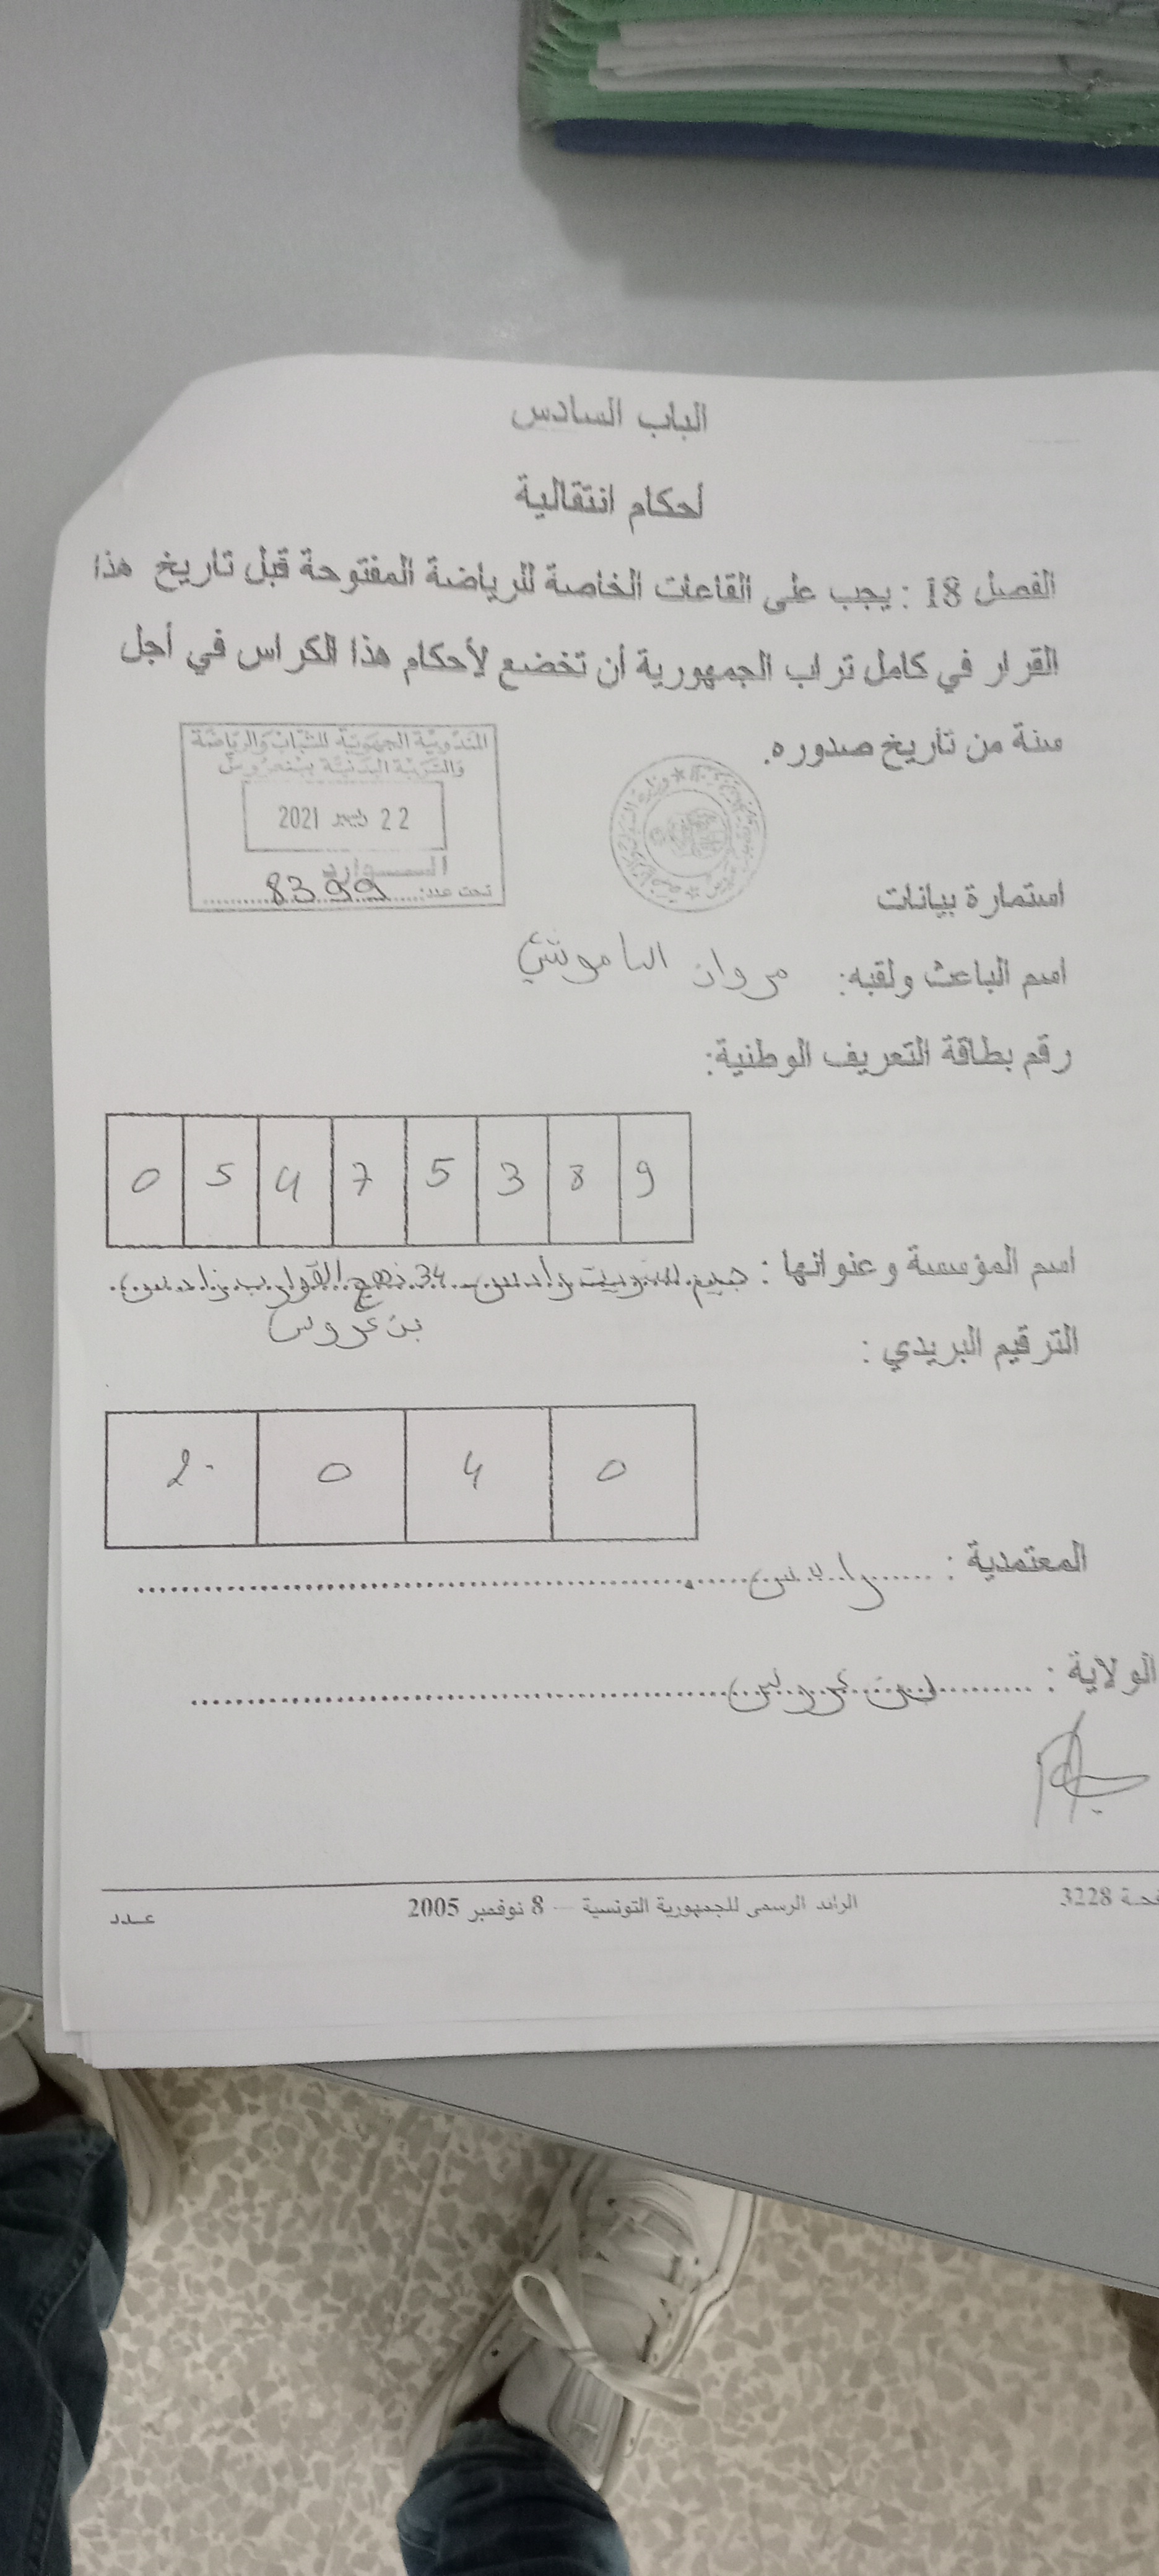 الباب السادس
أحكام انتقالية
الفصل 18 : يجب على القاعات الخاصة للرياضة المفتوحة قبل تاريخ هذا
القرار في كامل تراب الجمهورية أن تخضع لأحكام هذا الكراس في أجل
سنة من تاريخ صدوره.
المندوبية الجهوية للشباب والرياضة
والتربية البدنية ببنعروس
22 ديسمبر 2021
الـــواردات
تحت عدد: 8399
استمارة بيانات
اسم الباعث ولقبه: مروان
رقم بطاقة التعريف الوطنية:
0 5 4 7 5 3 8 9
اسم المؤسسة وعنوانها : جيم 34 نهج
بن عروس
الترقيم البريدي :
2 0 4 0
المعتمدية : رادس
الولاية : بن عروس
فحة 3228
الرائد الرسمي للجمهورية التونسية — 8 نوفمبر 2005
عــدد